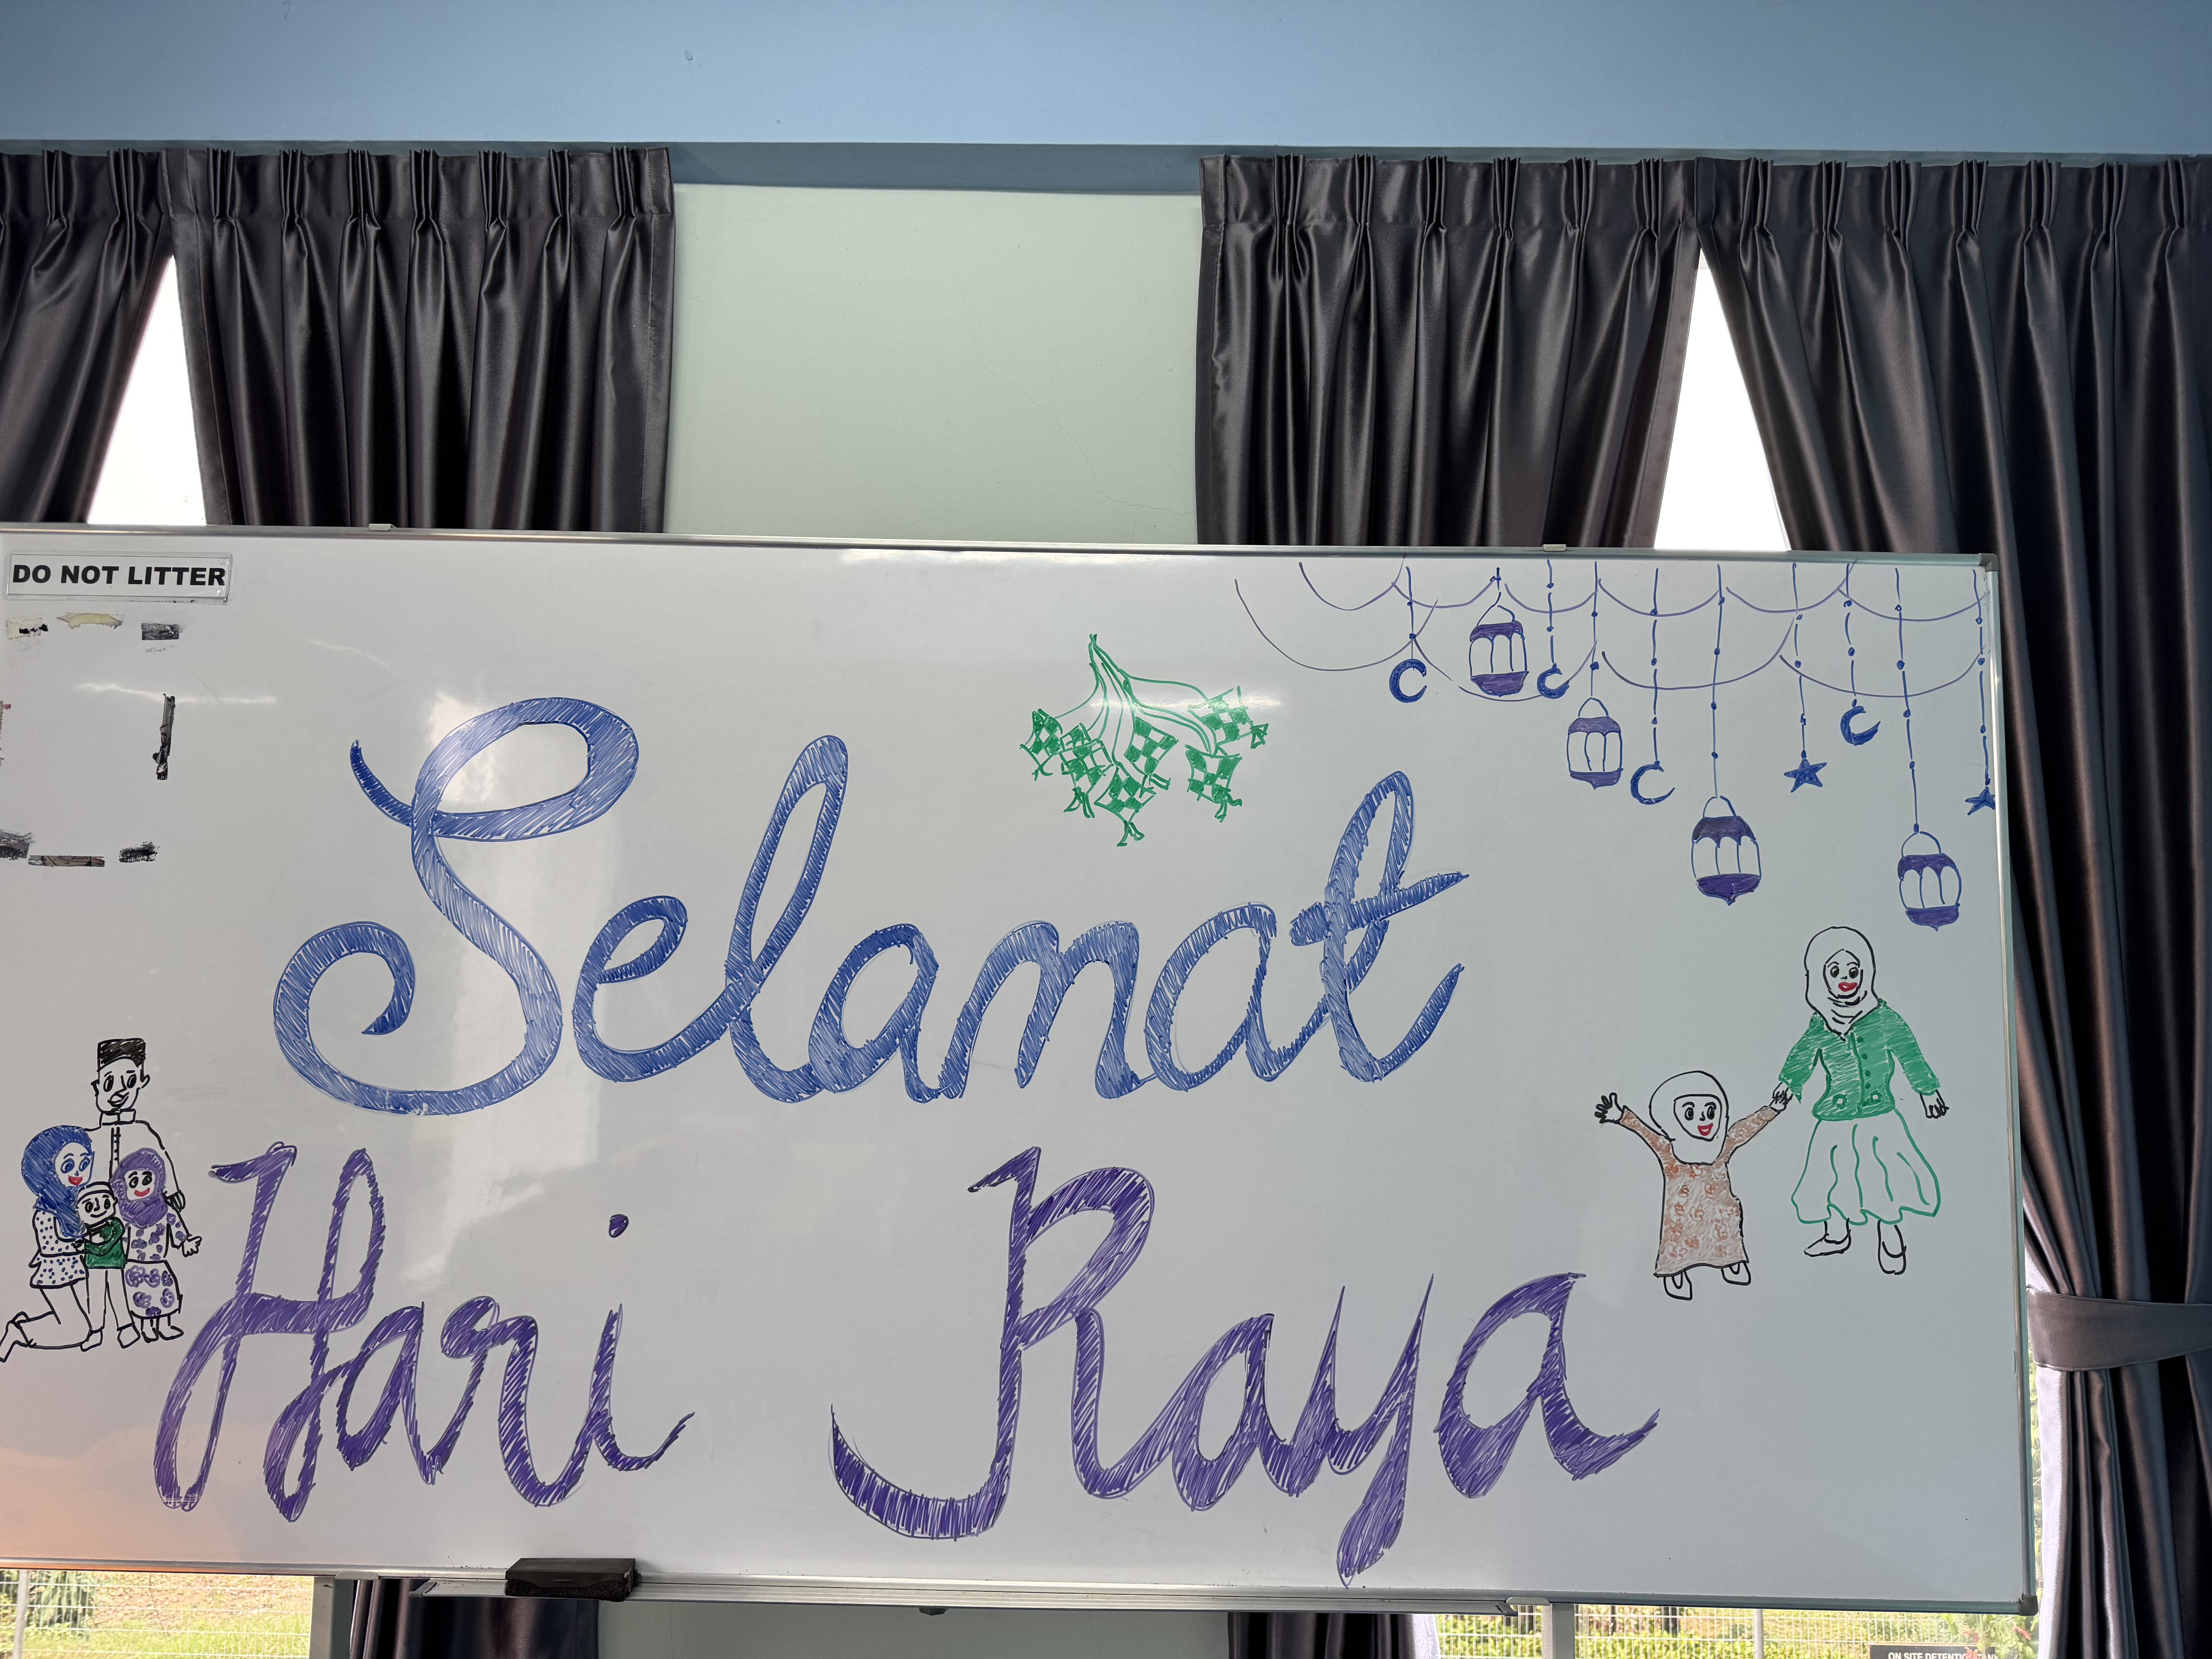 DO NOT LITTER
Selamat
Hari Raya
ON SITE DETENTION